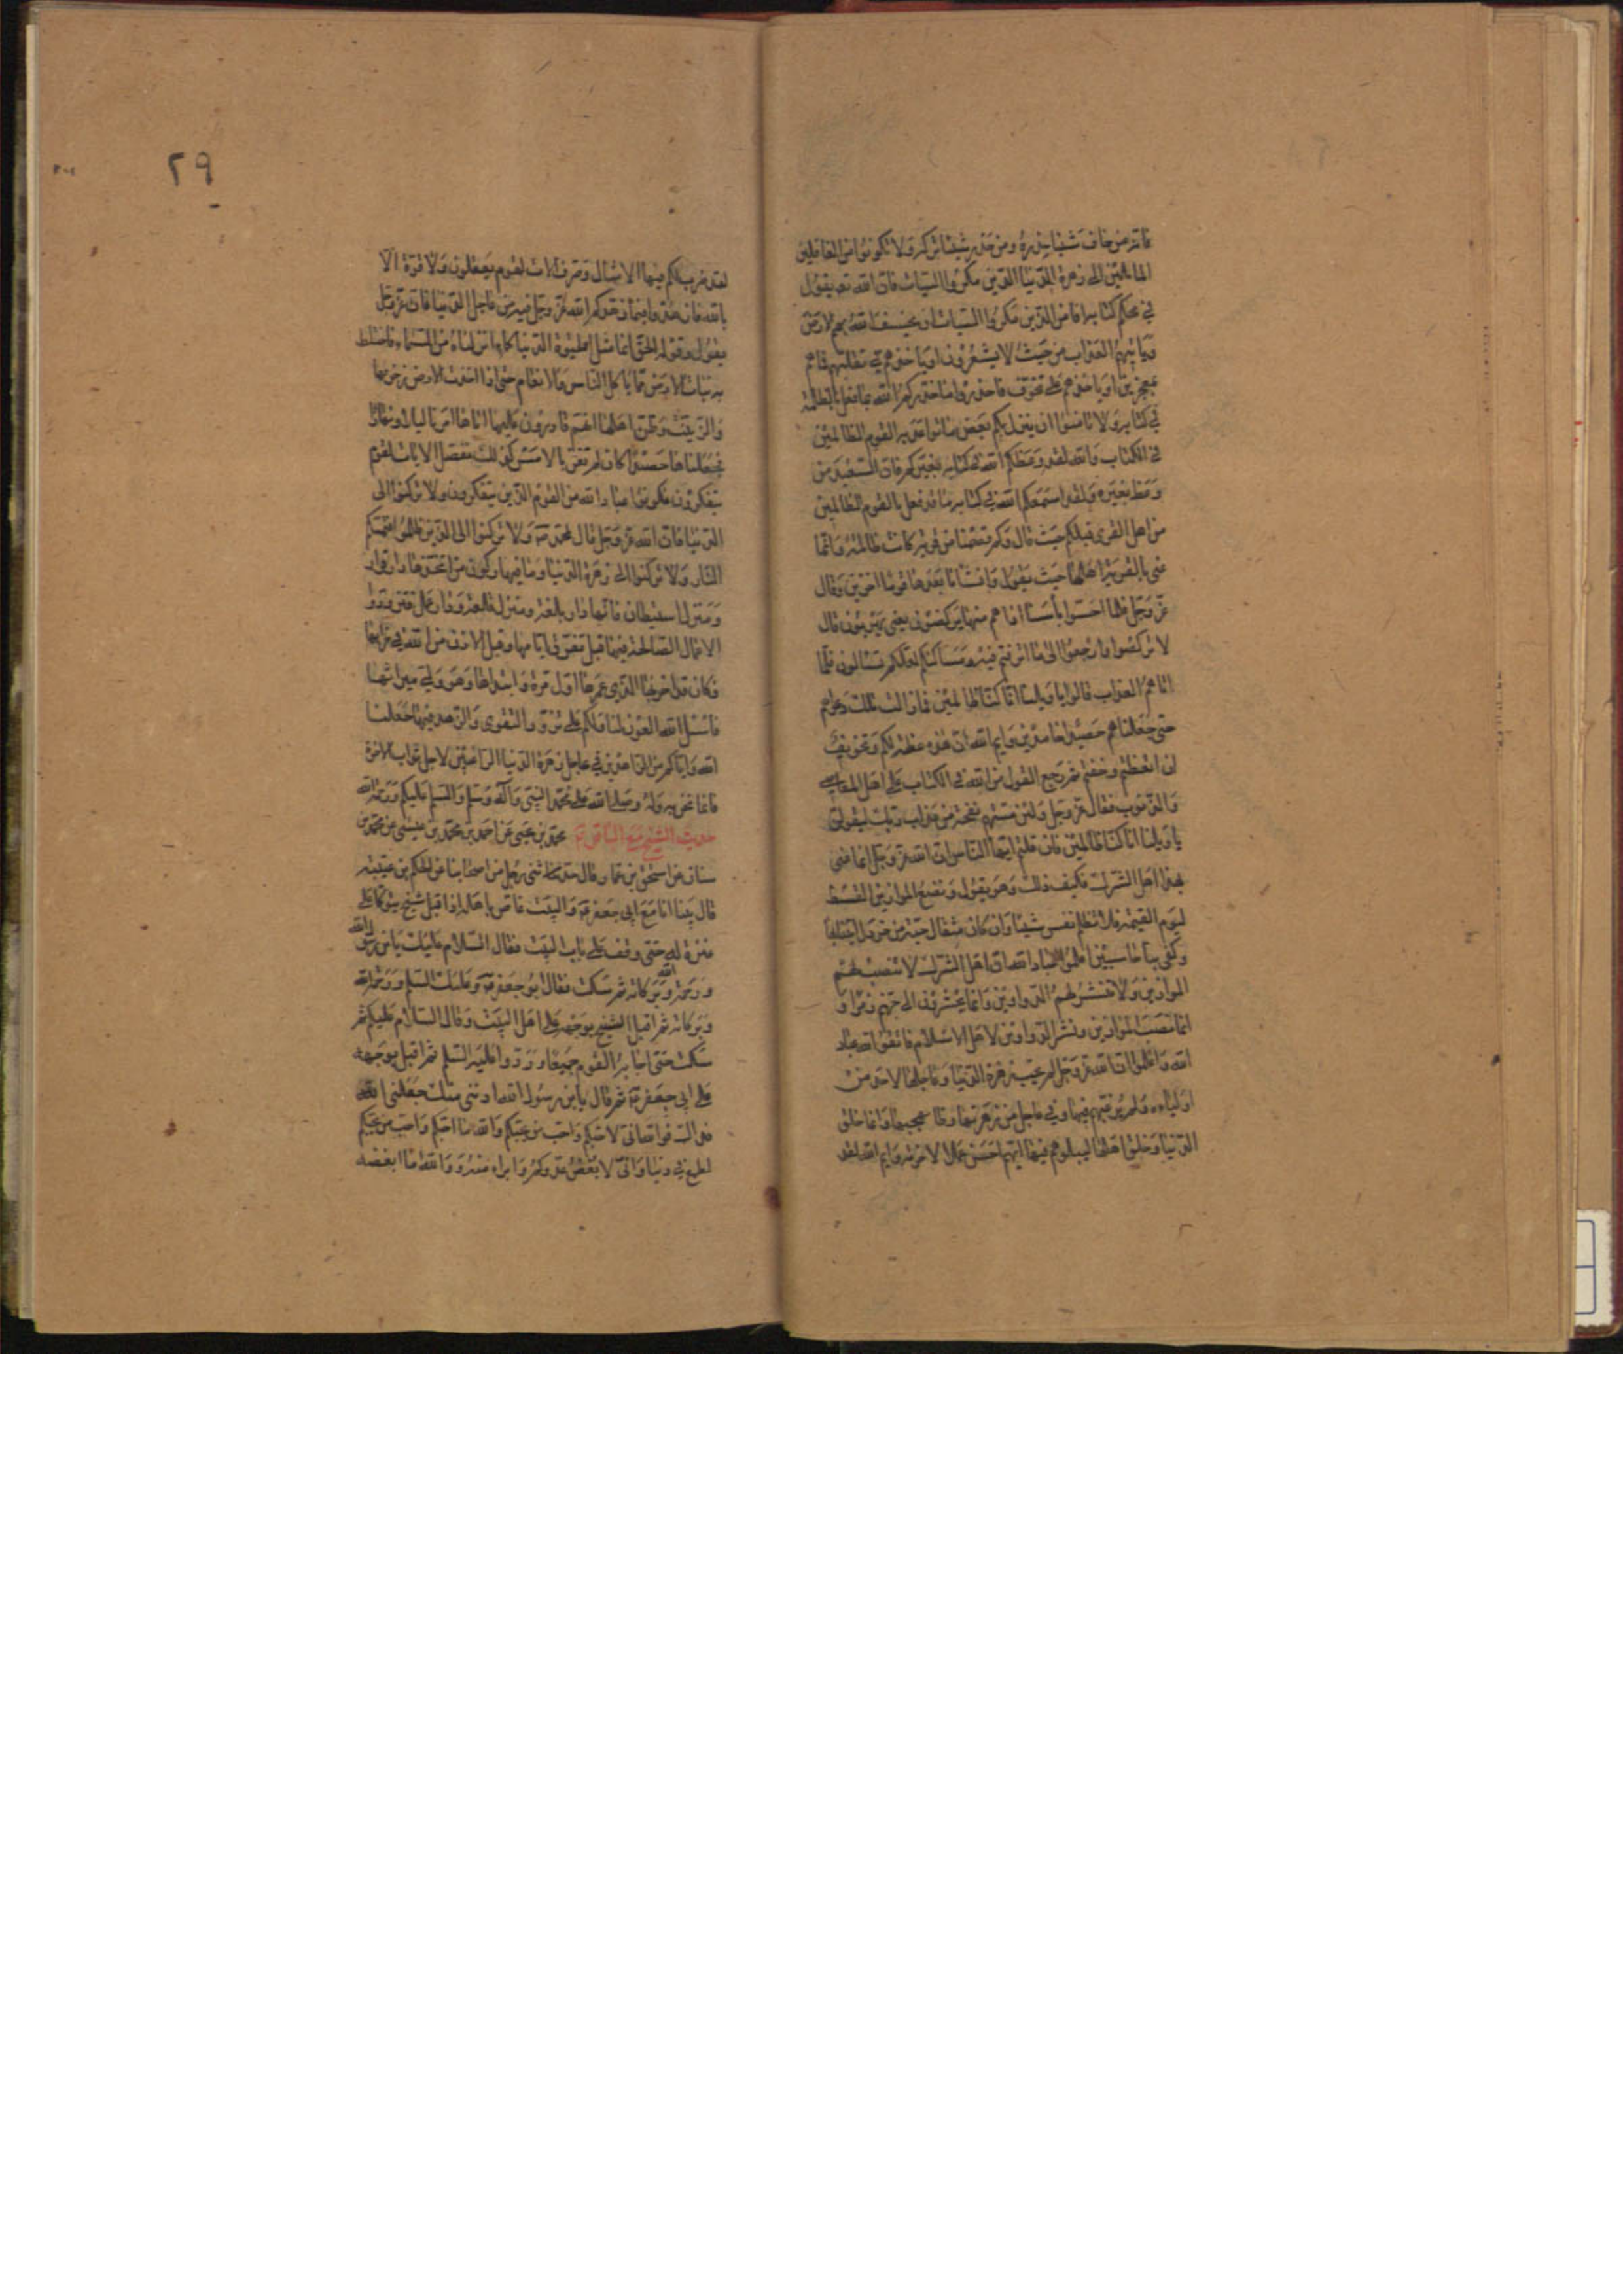 فانه من خاف شيئا حذره ومن حذر شيئا تركه ولا تكونوا من الغافلين
المائلين الى زهرة الدنيا الذين مكروا السيات فان الله تع يقول
في محكم كتابه افامن الذين مكروا السيات ان يخسف الله بهم الارض
او ياتيهم العذاب من حيث لا يشعرون او ياخذهم في تقلبهم فما هم
بمعجزين او ياخذهم على تخوف فاحذروا ما حذركم الله بما فعل بالظلمة
في كتابه ولا تامنوا ان ينزل بكم بعض ما تواعد به القوم الظالمين
في الكتاب والله لقد وعظكم الله في كتابه بغيركم فان السعيد من
وعظ بغيره ولقد اسمعكم الله في كتابه ما قد فعل بالقوم الظالمين
من اهل القرى قبلكم حيث قال وكم قصمنا من قرية كانت ظالمة وانما
عنى بالقرية اهلها حيث يقول وانشانا بعدها قوما اخرين فقال
عز وجل فلما احسوا باسنا اذا هم منها يركضون يعني يهربون قال
لا تركضوا وارجعوا الى ما اترفتم فيه ومساكنكم لعلكم تسالون فلما
اتاهم العذاب قالوا يا ويلنا انا كنا ظالمين فما زالت تلك دعويهم
حتى جعلناهم حصيدا خامدين وايم الله ان هذه عظة لكم وتخويف
ان اتعظتم وخفتم ثم رجع القول من الله في الكتاب على اهل المعاصي
والذنوب فقال عز وجل ولئن مستهم نفحة من عذاب ربك ليقولن
يا ويلنا انا كنا ظالمين فان قلتم ايها الناس ان الله عز وجل انما عنى
بهذا اهل الشرك فكيف ذلك وهو يقول ونضع الموازين القسط
ليوم القيمة فلا تظلم نفس شيئا وان كان مثقال حبة من خردل اتينا بها
وكفى بنا حاسبين اعلموا عباد الله ان اهل الشرك لا تنصب لهم
الموازين ولا تنشر لهم الدواوين وانما يحشرون الى جهنم زمرا و
انما نصب الموازين ونشر الدواوين لاهل الاسلام فاتقوا الله عباد
الله واعلموا ان الله عز وجل لم يحب زهرة الدنيا وعاجلها لاحد من
اوليائه ولم يرغبهم فيها وفي عاجل من زهرتها وظاهر بهجتها وانما خلق
الدنيا وخلق اهلها ليبلوهم فيها ايهم احسن عملا لاخرته وايم الله لقد
٢٩
لقد ضرب لكم فيها الامثال وصرف الايات لقوم يعقلون ولا قوة الا
بالله فازهدوا فيما زهدكم الله عز وجل فيه من عاجل الدنيا فان عز وجل
يقول وقوله الحق انما مثل الحيوة الدنيا كماء انزلناه من السماء فاختلط
به نبات الارض مما ياكل الناس والانعام حتى اذا اخذت الارض زخرفها
وازينت وظن اهلها انهم قادرون عليها اتاها امرنا ليلا او نهارا
فجعلناها حصيدا كان لم تغن بالامس كذلك نفصل الايات لقوم
يتفكرون فكونوا عباد الله من القوم الذين يتفكرون ولا تركنوا الى
الدنيا فان الله عز وجل قال لمحمد ص ولا تركنوا الى الذين ظلموا فتمسكم
النار ولا تركنوا الى زهرة الدنيا وما فيها ركون من اتخذها دار قرار
ومنزل استيطان فانها دار بلغة ومنزل قلعة ودار عمل فتزودوا
الاعمال الصالحة فيها قبل تفرق ايامها وقبل الاذن من الله في خرابها
فكان قد اخربها الذي عمرها اول مرة وابتداها وهو ولي ميراثها
فاسئل الله العون لنا ولكم على تزود التقوى والزهد فيها جعلنا
الله واياكم من الزاهدين في عاجل زهرة الدنيا الراغبين لاجل ثواب الاخرة
فانما نحن به وله وصلى الله على محمد النبي وآله وسلم والسلم عليكم ورحمة الله
حديث الشيخ مع الباقر ع محمد بن يحيى عن احمد بن محمد بن عيسى عن محمد بن
سنان عن اسحق بن عمار قال حدثني رجل من اصحابنا عن الحكم بن عيتبه
قال بينا انا مع ابي جعفر ع والبيت غاص باهله اذ اقبل شيخ يتوكا على
عنزة له حتى وقف على باب البيت فقال السلام عليك يا بن رسول الله
ورحمة الله وبركاته ثم سكت فقال ابو جعفر ع وعليك السلم ورحمة الله
وبركاته ثم اقبل الشيخ بوجهه على اهل البيت وقال السلام عليكم ثم
سكت حتى اجابه القوم جميعا وردوا عليه السلم ثم اقبل بوجهه
على ابي جعفر ع ثم قال يا بن رسول الله ادنني منك جعلني الله
فداك فوالله اني لاحبكم واحب من يحبكم والله ما احبكم واحب من يحبكم
لطمع في دنيا واني لابغض عدوكم وابرا منه ووالله ما ابغضه